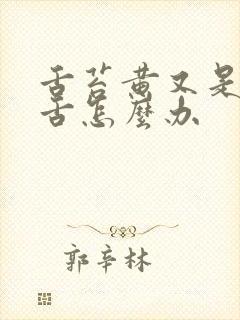 舌苔黄又是
舌怎麼办
郭辛林